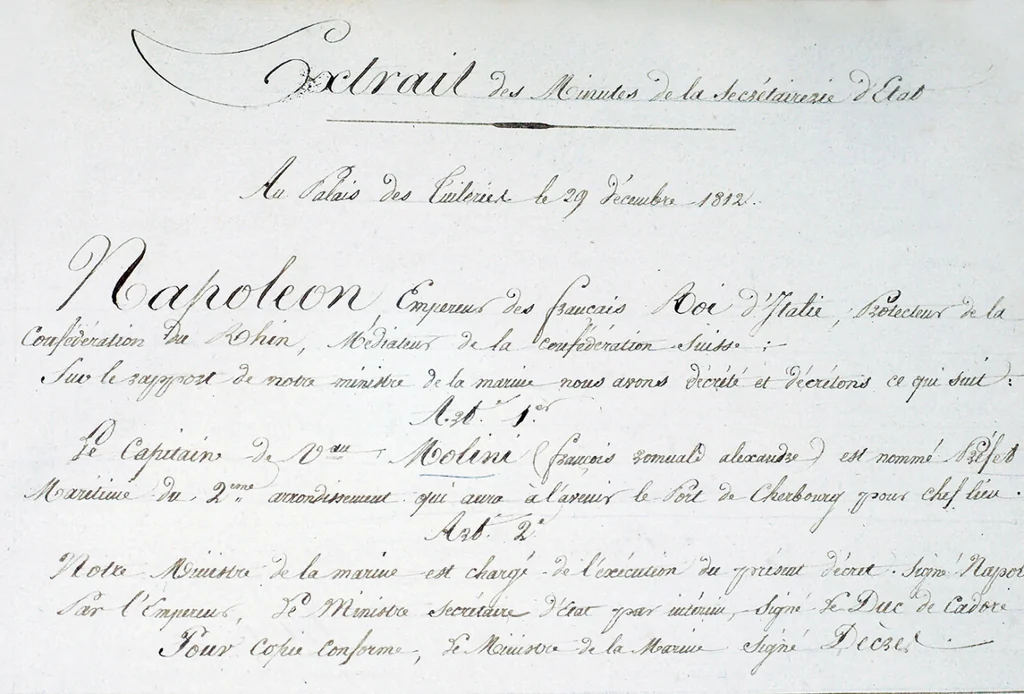 Extrait des Minutes de la Secrétairerie d'Etat
Au Palais des Tuileries le 29 décembre 1812.
Napoleon, Empereur des français Roi d'Italie, Protecteur de la
Confédération du Rhin, Médiateur de la confédération Suisse :
Sur le rapport de notre ministre de la marine nous avons décrété et décrétons ce qui suit :
Art. 1er
Le Capitaine de Vau Molini (françois romuald alexandre) est nommé Préfet
Maritime du 2eme arrondissement qui aura à l'avenir le Port de Cherbourg pour chef lieu.
Art. 2e
Notre Ministre de la marine est chargé de l'exécution du présent décret. Signé Napol
Par l'Empereur, Le Ministre Secrétaire d'Etat par interim, signé Le Duc de Cadore
Pour Copie Conforme, Le Ministre de la Marine signé Decres